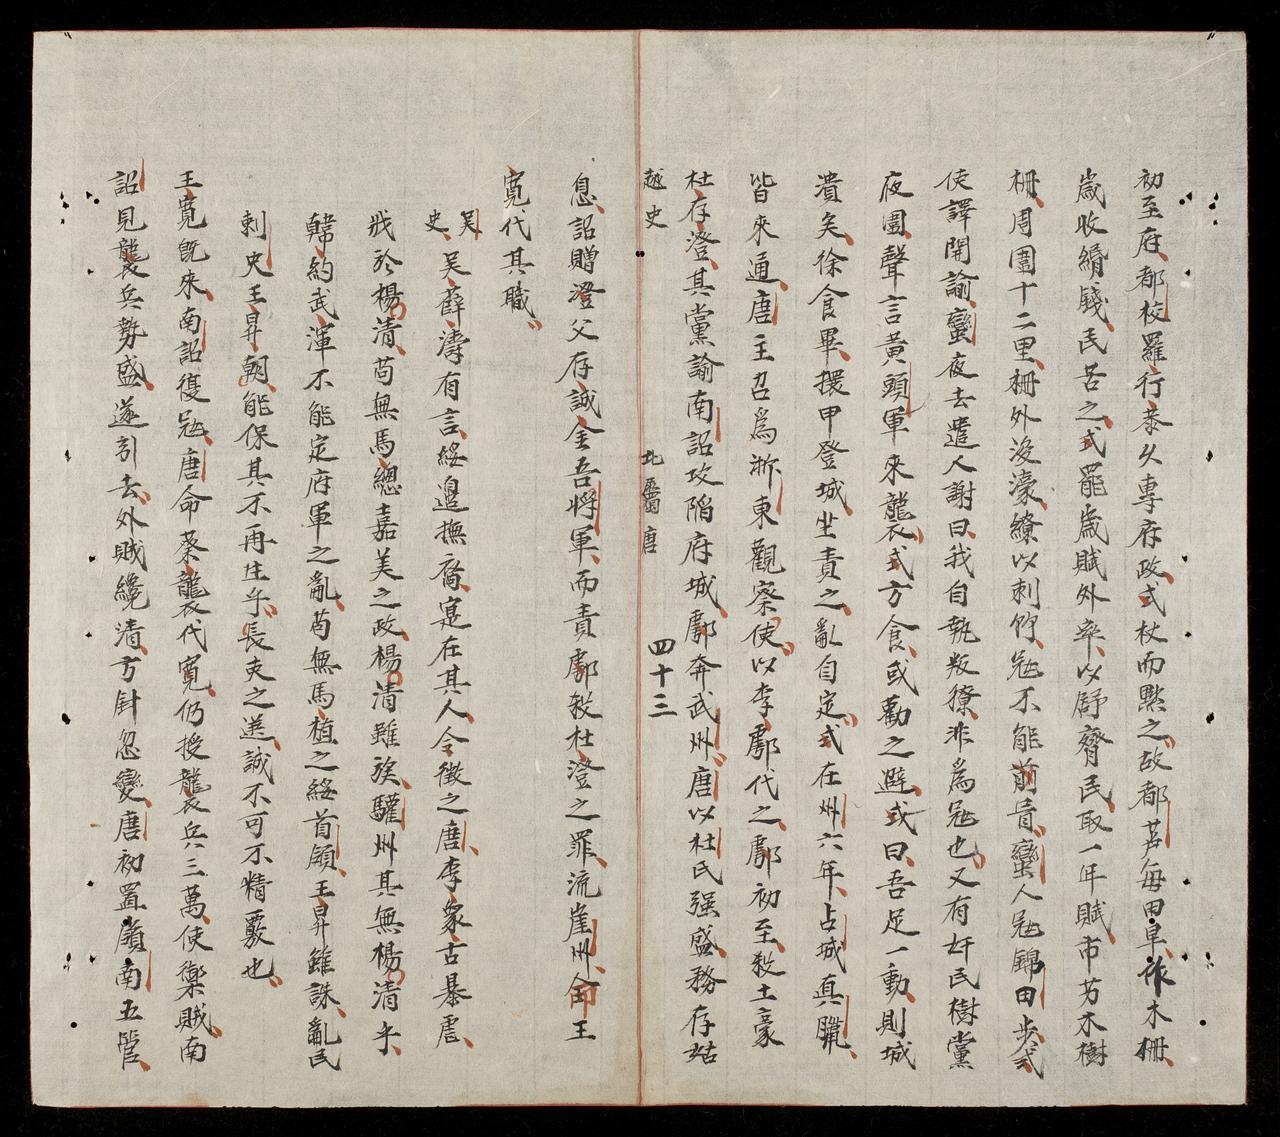 初至府都校羅行恭久專府政式杖而黜之故都芦每田阜作木柵
歲收緡錢民苦之式罷歲賦外率以舒齊民取一年賦市芀木樹
柵周圍十二里柵外浚濠繚以刺竹寇不能前晋蠻人寇錦田步式
使譯開諭蠻夜去遣人謝曰我自執叛獠非爲寇也又有奸民樹黨
夜圍聲言黃頭軍來襲式方食或勸之避式曰吾足一動則城
潰矣徐食畢擐甲登城坐責之亂自定式在州六年占城真臘
皆來通唐主召爲浙東觀察使以李鄠代之鄠初至殺土豪
杜存澄其黨諭南詔攻陷府城鄠奔武州唐以杜氏强盛務存姑
越史 北屬唐 四十三
息詔贈澄父存誠金吾將軍而責鄠殺杜澄之罪流崖州命王
寬代其職
吴史吴薛濤有言綏邉撫裔寔在其人今徵之唐李象古暴虐
戕於楊清苟無馬總嘉美之政楊清雖族驩州其無楊清乎
韓約武渾不能定府軍之亂苟無馬植之綏首領王昇雖誅亂民
刺史王昇朝能保其不再生乎長吏之選誠不可不精覈也
王寬旣來南詔復寇唐命蔡襲代寬仍授襲兵三萬使禦賊南
詔見襲兵勢盛遂引去外賊纔清方針忽變唐初置嶺南五管